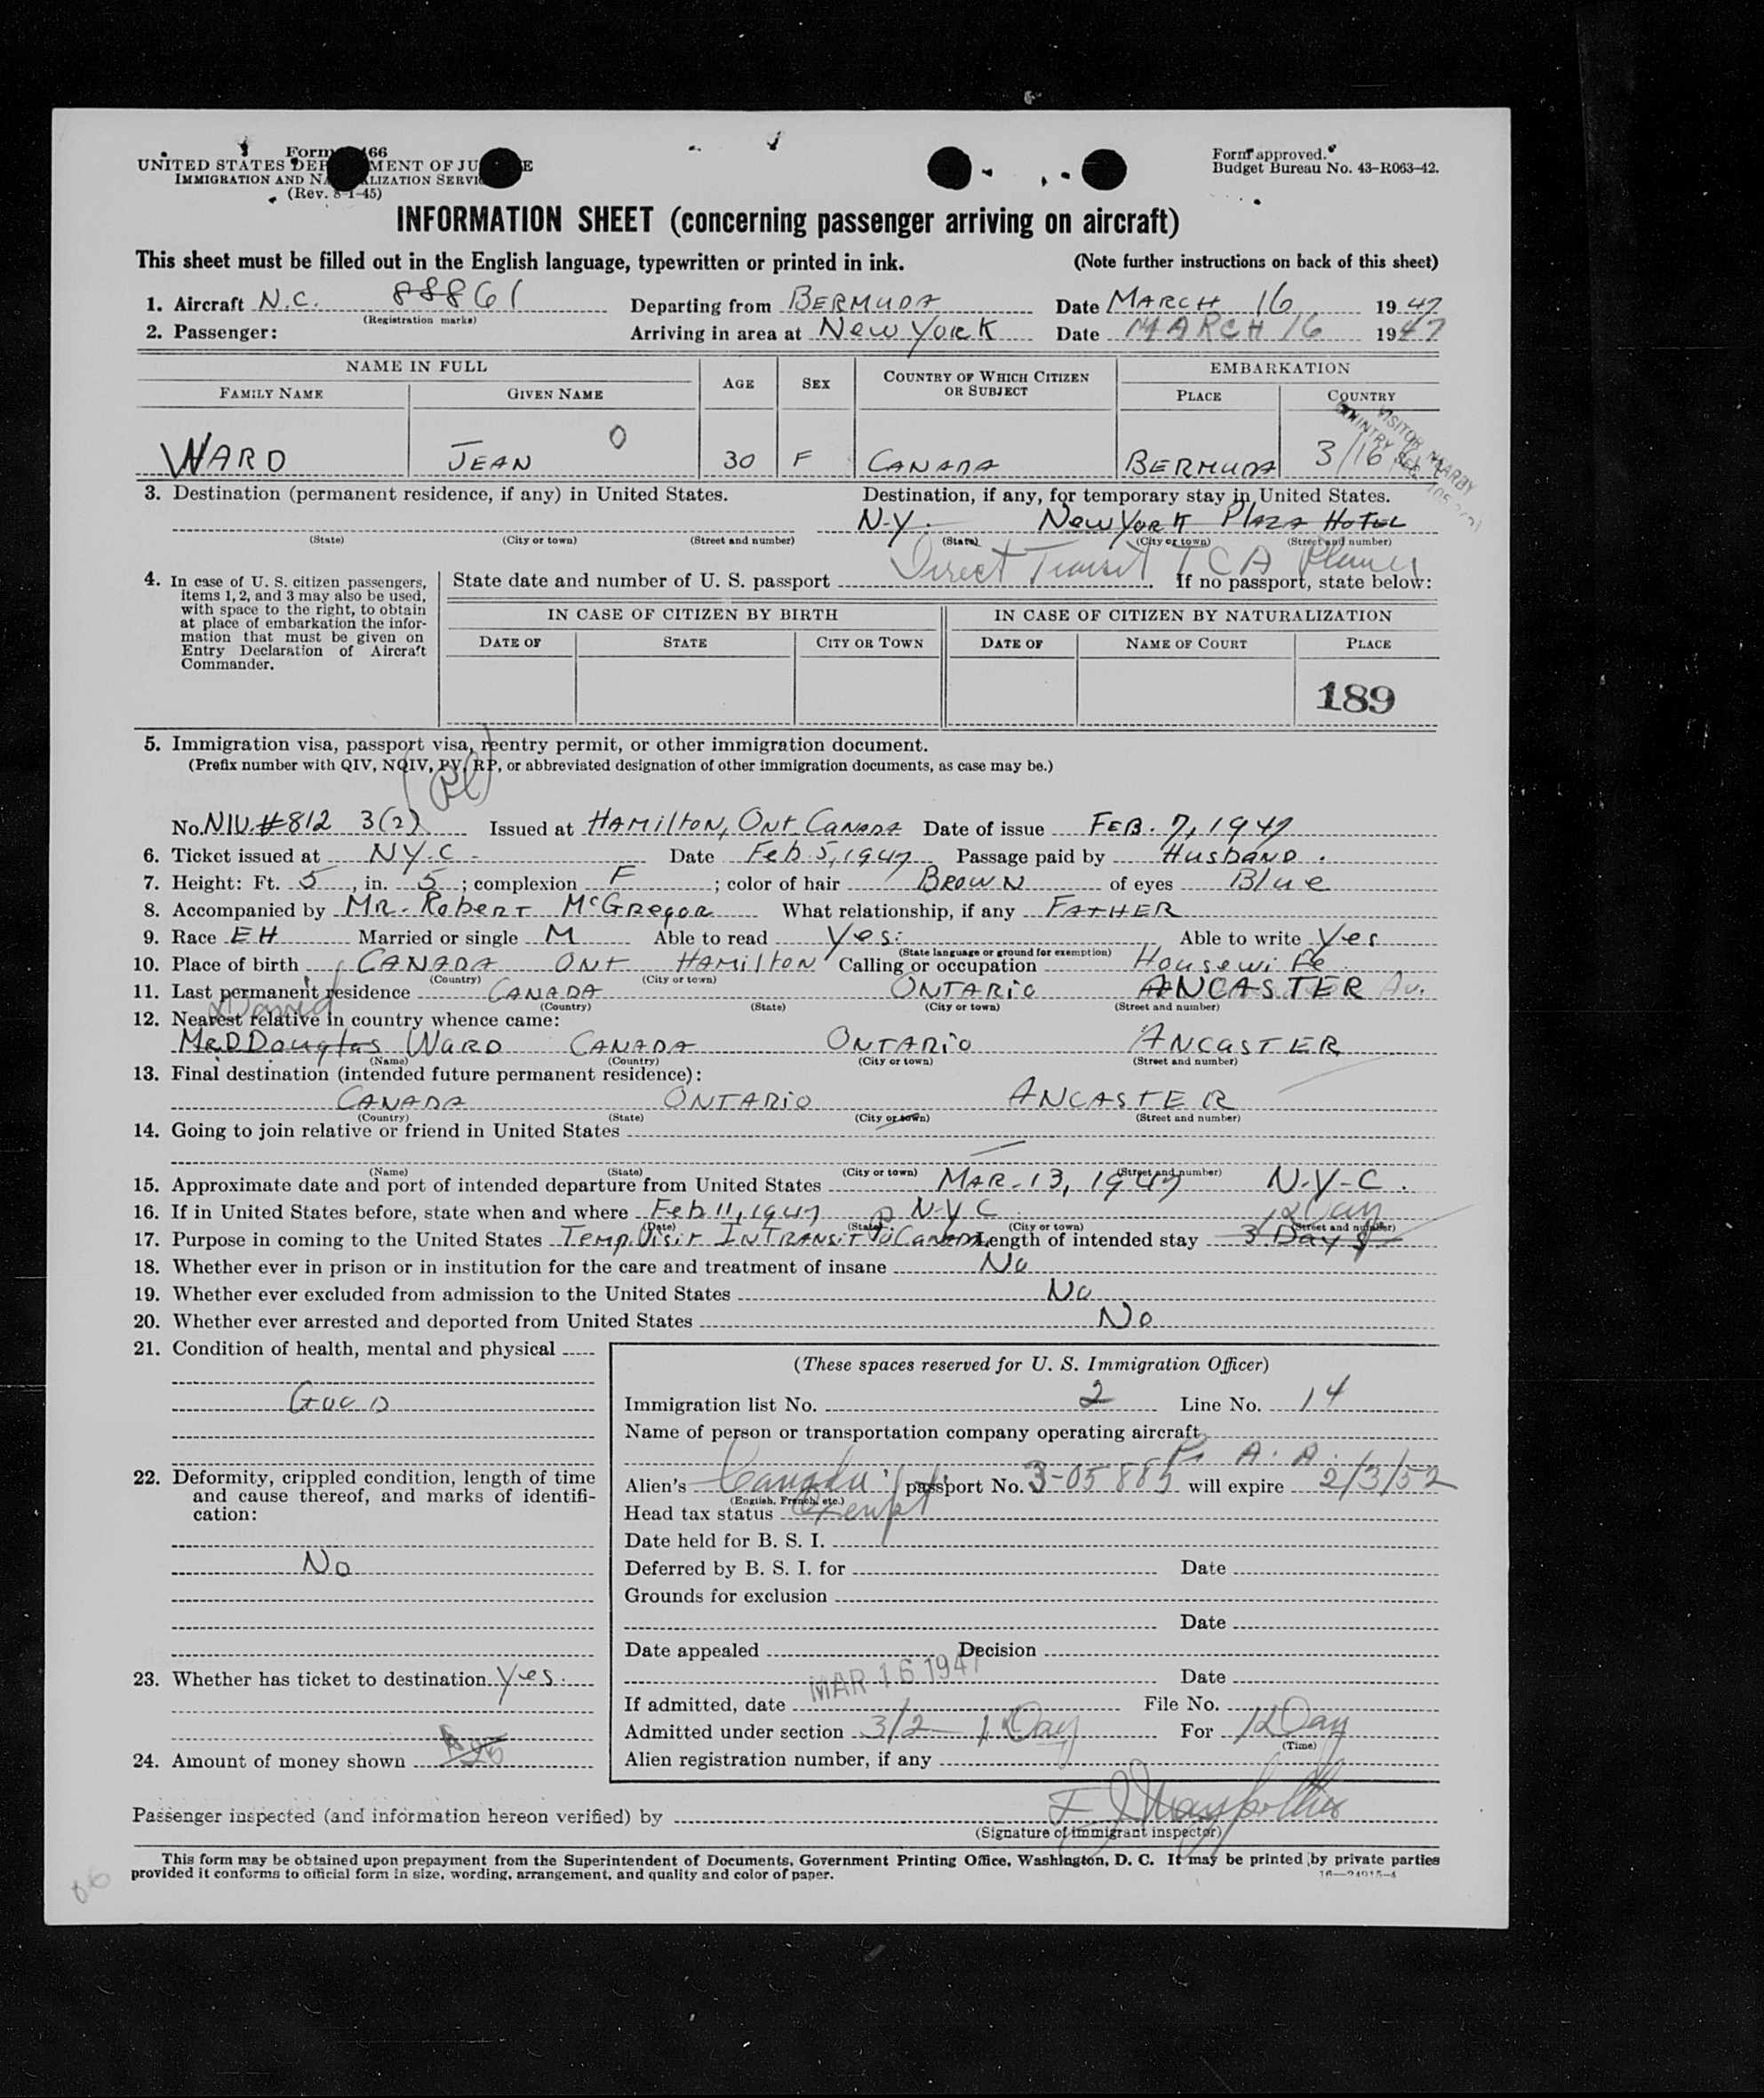 Form 66
UNITED STATES DEP MENT OF JU E
IMMIGRATION AND NA LIZATION SERVI
(Rev. 8-1-45)
Form approved.
Budget Bureau No. 43-R063-42.
INFORMATION SHEET (concerning passenger arriving on aircraft)
This sheet must be filled out in the English language, typewritten or printed in ink. (Note further instructions on back of this sheet)
1. Aircraft N.C. 88861 Departing from BERMUDA Date MARCH 16 1947
(Registration marks)
2. Passenger: Arriving in area at New York Date MARCH 16 1947
NAME IN FULL AGE SEX COUNTRY OF WHICH CITIZEN OR SUBJECT EMBARKATION
FAMILY NAME GIVEN NAME PLACE COUNTRY
WARD JEAN 0 30 F CANADA BERMUDA 3/16
VISITOR NEARBY
COUNTRY SEC
3. Destination (permanent residence, if any) in United States. Destination, if any, for temporary stay in United States.
N.Y. New York Plaza Hotel
(State) (City or town) (Street and number) (State) (City or town) (Street and number)
Direct Transit T C A
4. In case of U. S. citizen passengers, items 1, 2, and 3 may also be used, with space to the right, to obtain at place of embarkation the information that must be given on Entry Declaration of Aircraft Commander.
State date and number of U. S. passport If no passport, state below:
IN CASE OF CITIZEN BY BIRTH IN CASE OF CITIZEN BY NATURALIZATION
DATE OF STATE CITY OR TOWN DATE OF NAME OF COURT PLACE
189
5. Immigration visa, passport visa, reentry permit, or other immigration document.
(Prefix number with QIV, NQIV, PV, RP, or abbreviated designation of other immigration documents, as case may be.)
No. NIV. #812 3(2) Issued at Hamilton, Ont. Canada Date of issue FEB. 7, 1947
6. Ticket issued at N.Y.C. Date Feb 5, 1947 Passage paid by Husband.
7. Height: Ft. 5, in. 5; complexion F; color of hair BROWN of eyes Blue
8. Accompanied by MR. Robert McGregor What relationship, if any FATHER
9. Race EH Married or single M Able to read Yes. Able to write Yes
(State language or ground for exemption)
10. Place of birth CANADA ONT HAMILTON Calling or occupation Housewife
(Country) (City or town)
11. Last permanent residence CANADA ONTARIO ANCASTER Av.
(Country) (State) (City or town) (Street and number)
David
12. Nearest relative in country whence came:
Mr. D Douglas WARD CANADA ONTARIO ANCASTER
(Name) (Country) (City or town) (Street and number)
13. Final destination (intended future permanent residence):
CANADA ONTARIO ANCASTER
(Country) (State) (City or town) (Street and number)
14. Going to join relative or friend in United States
(Name) (State) (City or town) (Street and number)
15. Approximate date and port of intended departure from United States MAR-13, 1947 N-Y-C.
16. If in United States before, state when and where Feb 11, 1947 N.Y.C
(Date) (State) (City or town) (Street and number)
1 Day
17. Purpose in coming to the United States Temp. Visit In Transit to Canada Length of intended stay 3 Days
18. Whether ever in prison or in institution for the care and treatment of insane No
19. Whether ever excluded from admission to the United States No
20. Whether ever arrested and deported from United States No
21. Condition of health, mental and physical
Good
22. Deformity, crippled condition, length of time and cause thereof, and marks of identification:
No
23. Whether has ticket to destination Yes.
24. Amount of money shown
(These spaces reserved for U. S. Immigration Officer)
Immigration list No. 2 Line No. 14
Name of person or transportation company operating aircraft
P. A. A.
Alien's Canada passport No. 3-05885 will expire 2/3/52
(English, French, etc.)
Head tax status Exempt
Date held for B. S. I.
Deferred by B. S. I. for Date
Grounds for exclusion
Date
Date appealed Decision
Date
If admitted, date MAR 16 1947 File No.
Admitted under section 3/2 1 Day For 1 Day
(Time)
Alien registration number, if any
Passenger inspected (and information hereon verified) by
(Signature of immigrant inspector)
This form may be obtained upon prepayment from the Superintendent of Documents, Government Printing Office, Washington, D. C. It may be printed by private parties
provided it conforms to official form in size, wording, arrangement, and quality and color of paper.
16—24915-4